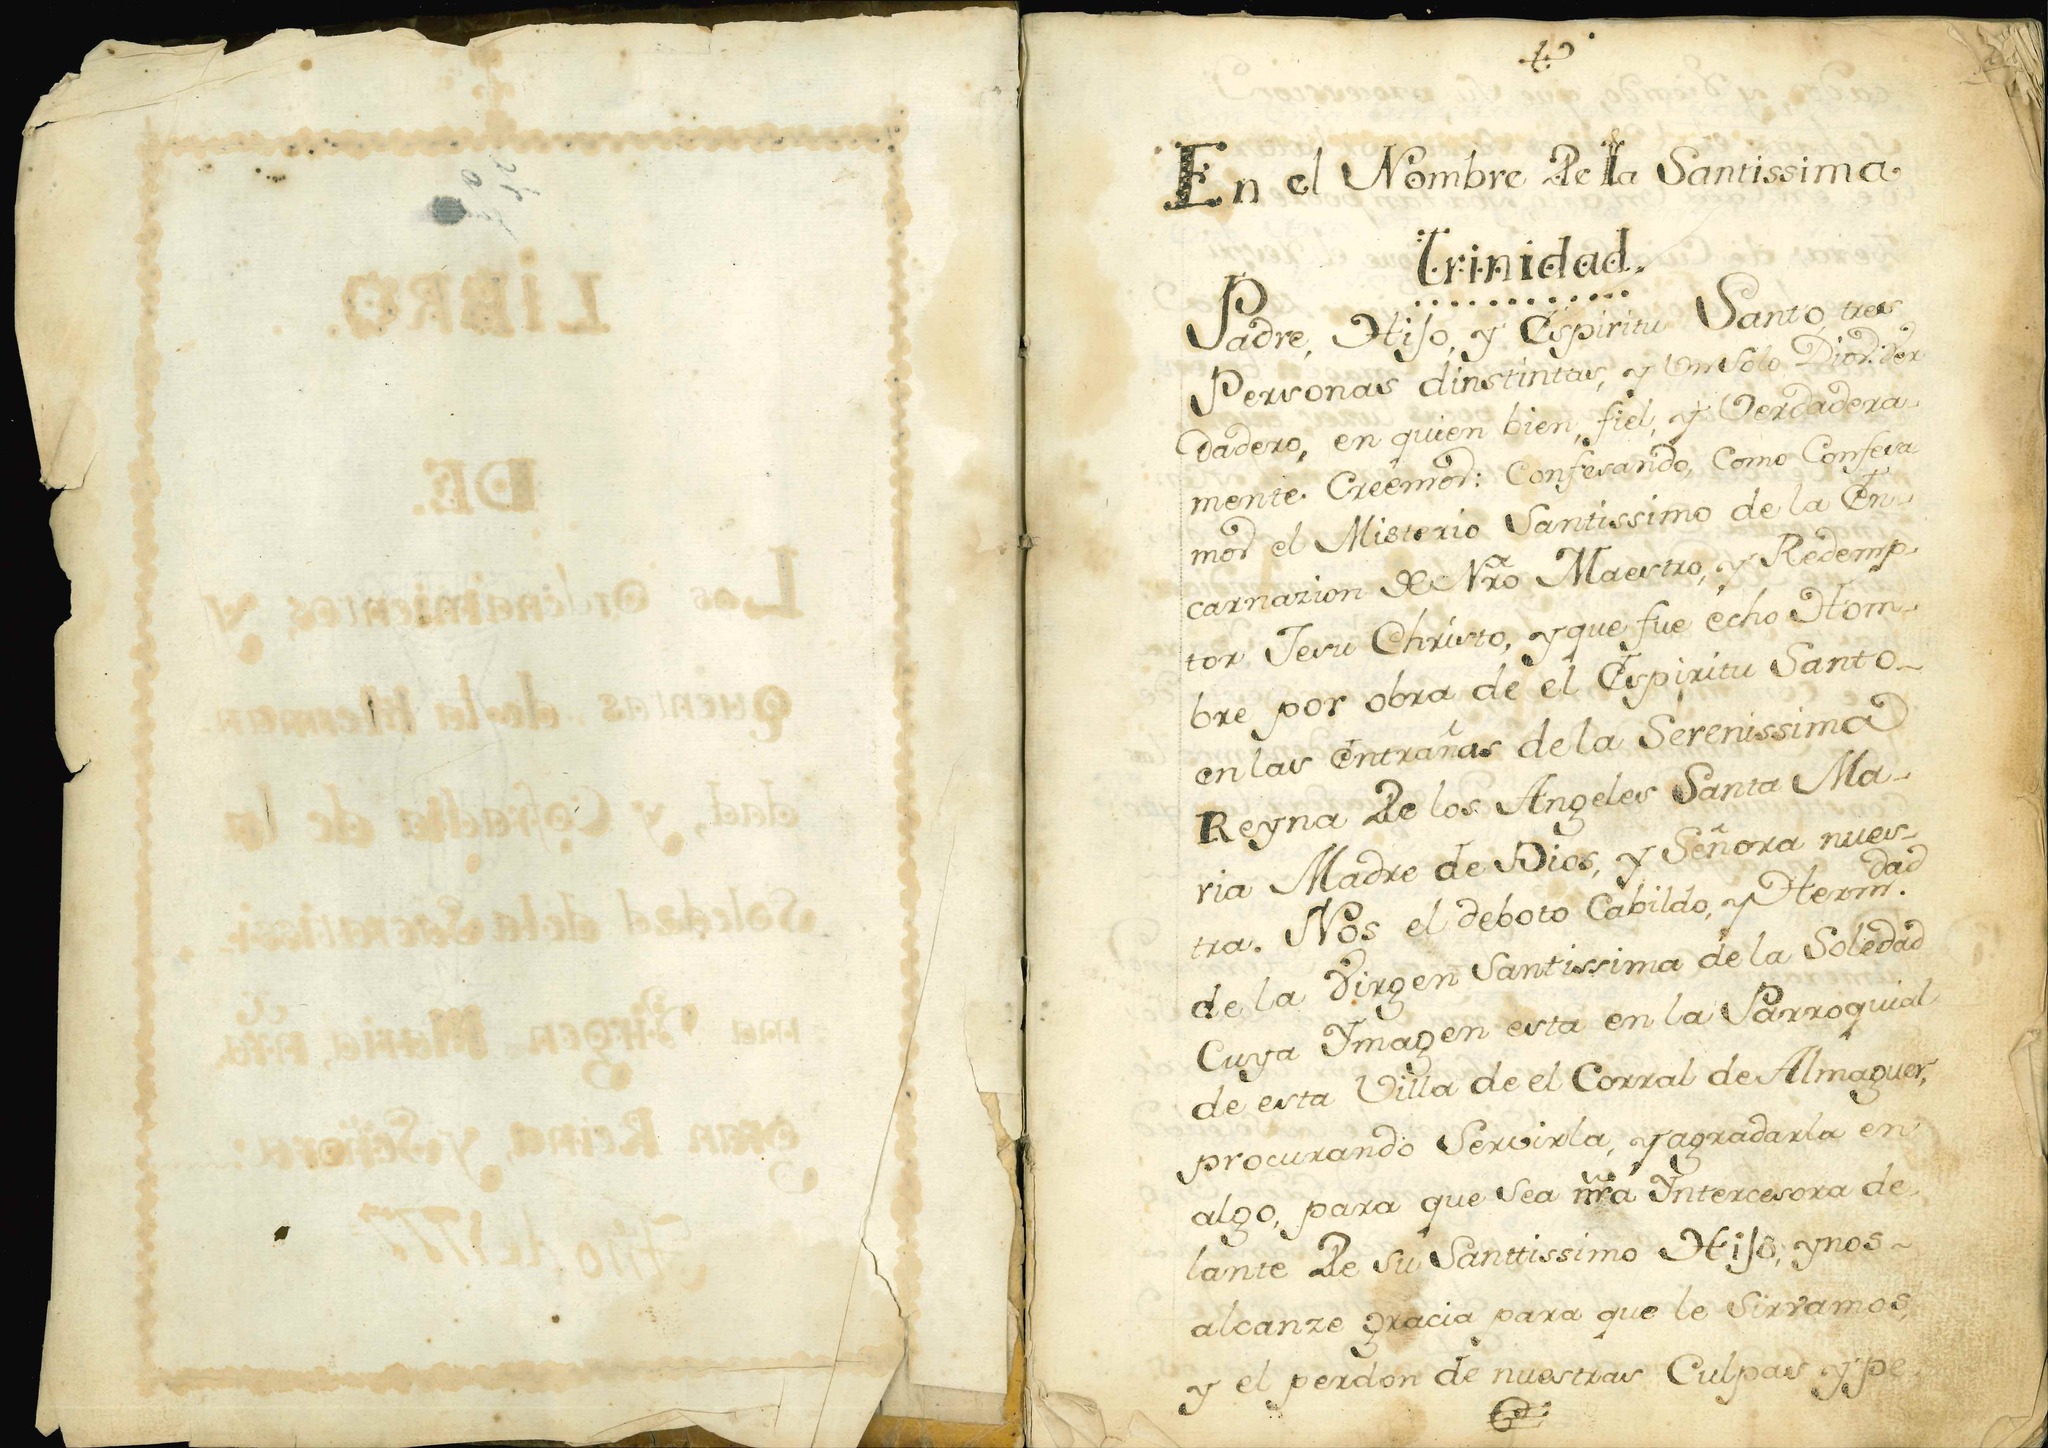 LIBRO.
DE.
Los Ordenamientos, y
Quentas de la Herman.
dad, y Cofradia de la
Soledad de la Serenissi-
ma Virgen Maria, nra.
gran Reina, y Señora:
Año de
En el Nombre De la Santissima
Trinidad.
Padre, Hijo, y Espiritu Santo, tres
Personas dinstintas, y Un Solo Dios: Ver
dadero, en quien bien, fiel, y Verdadera-
mente Creemos: Confesando, Como Confesa
mos el Misterio Santissimo de la En-
carnazion de Nro Maestro, y Redemp
tor Jesu Christo, y que fue echo Hom-
bre por obra de el Espiritu Santo-
en las Entrañas de la Serenissima
Reyna De los Angeles Santa Ma-
ria Madre de Dios, y Señora nues-
tra. Nos el deboto Cabildo, y Herm.dad
de la Virgen Santissima de la Soledad
Cuya Ymagen esta en la Parroquial
de esta Villa de el Corral de Almaguer,
procurando Servirla, y agradarla en
algo, para que sea nra Yntercesora de
lante De su Santtissimo Hijo, y nos-
alcanze gracia para que le Sirvamos,
y el perdon de nuestras Culpas y pe